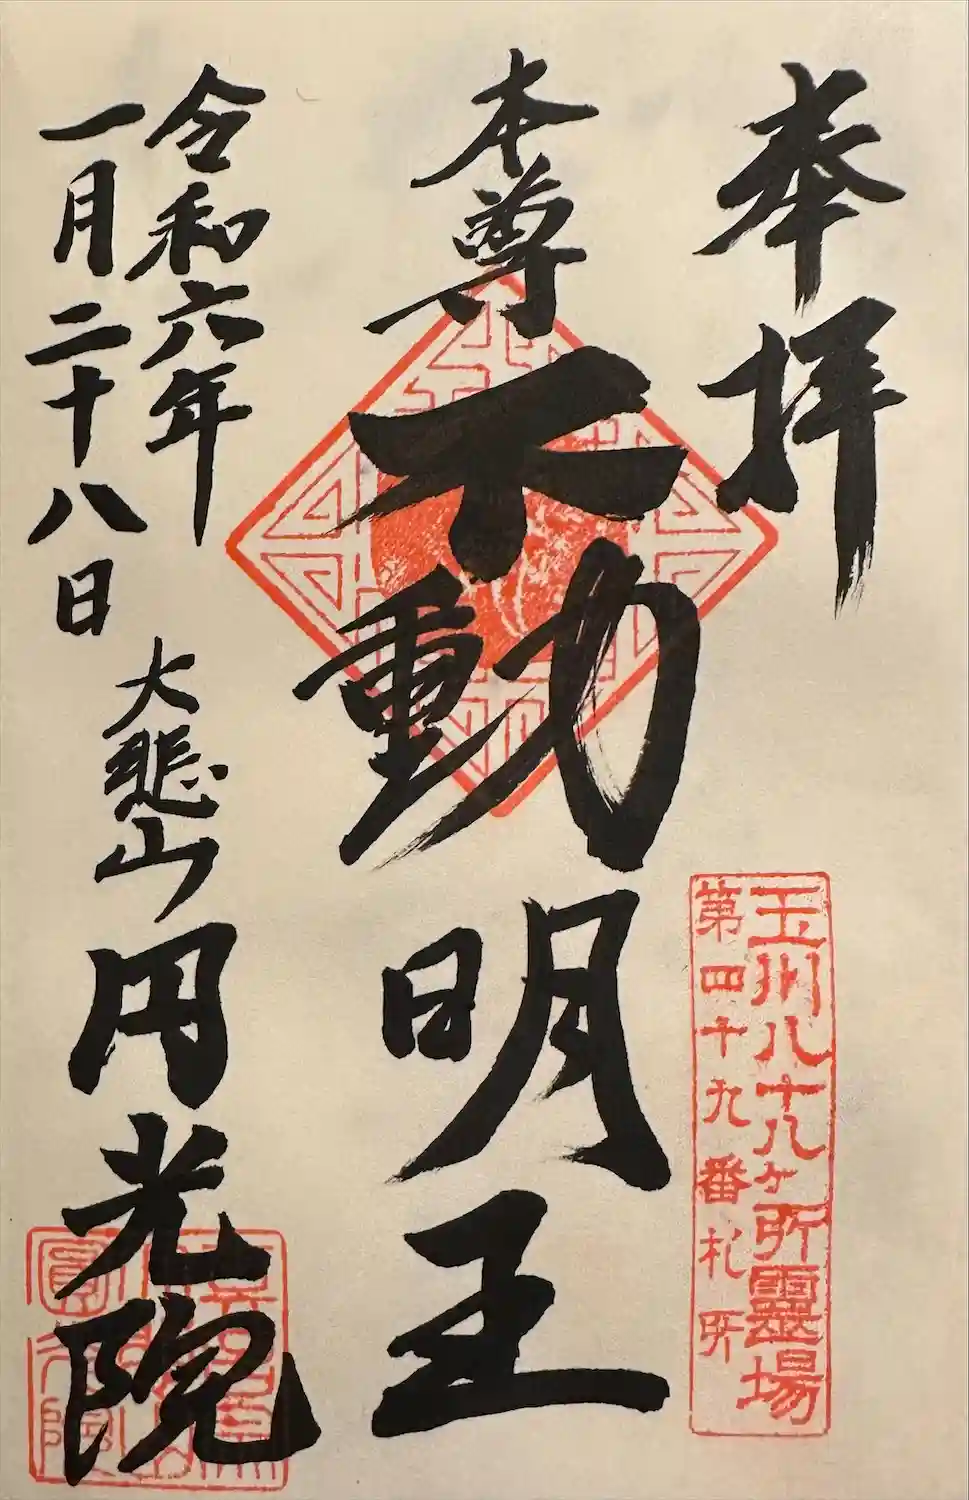 奉拝
玉川八十八ヶ所霊場
第四十九番札所
本尊
不動明王
令和六年
一月二十八日
大悲山
円光院